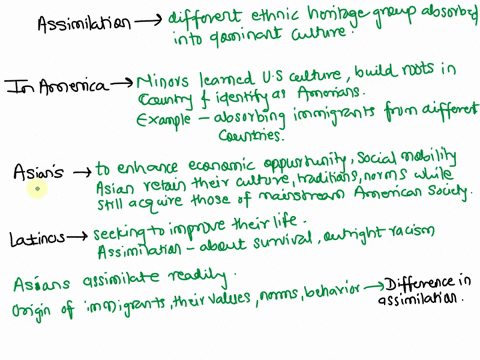 Assimilation → different ethnic heritage group absorbed
into dominant culture.
In America → Minors learned U.S culture, build roots in
Country & identify as Amerians.
Example - absorbing immigrants from different
Countries.
Asian's → to enhance economic oppurtunity, Social mobility
Asian retain their culture, traditions, norms while
still acquire those of mainstream American Society.
Latincus → seeking to improve their life.
Assimilation - about survival, outright racism
Asians assimilate readily.
Origin of immigrants, their values, norms, behavior → Difference in
assimilation.